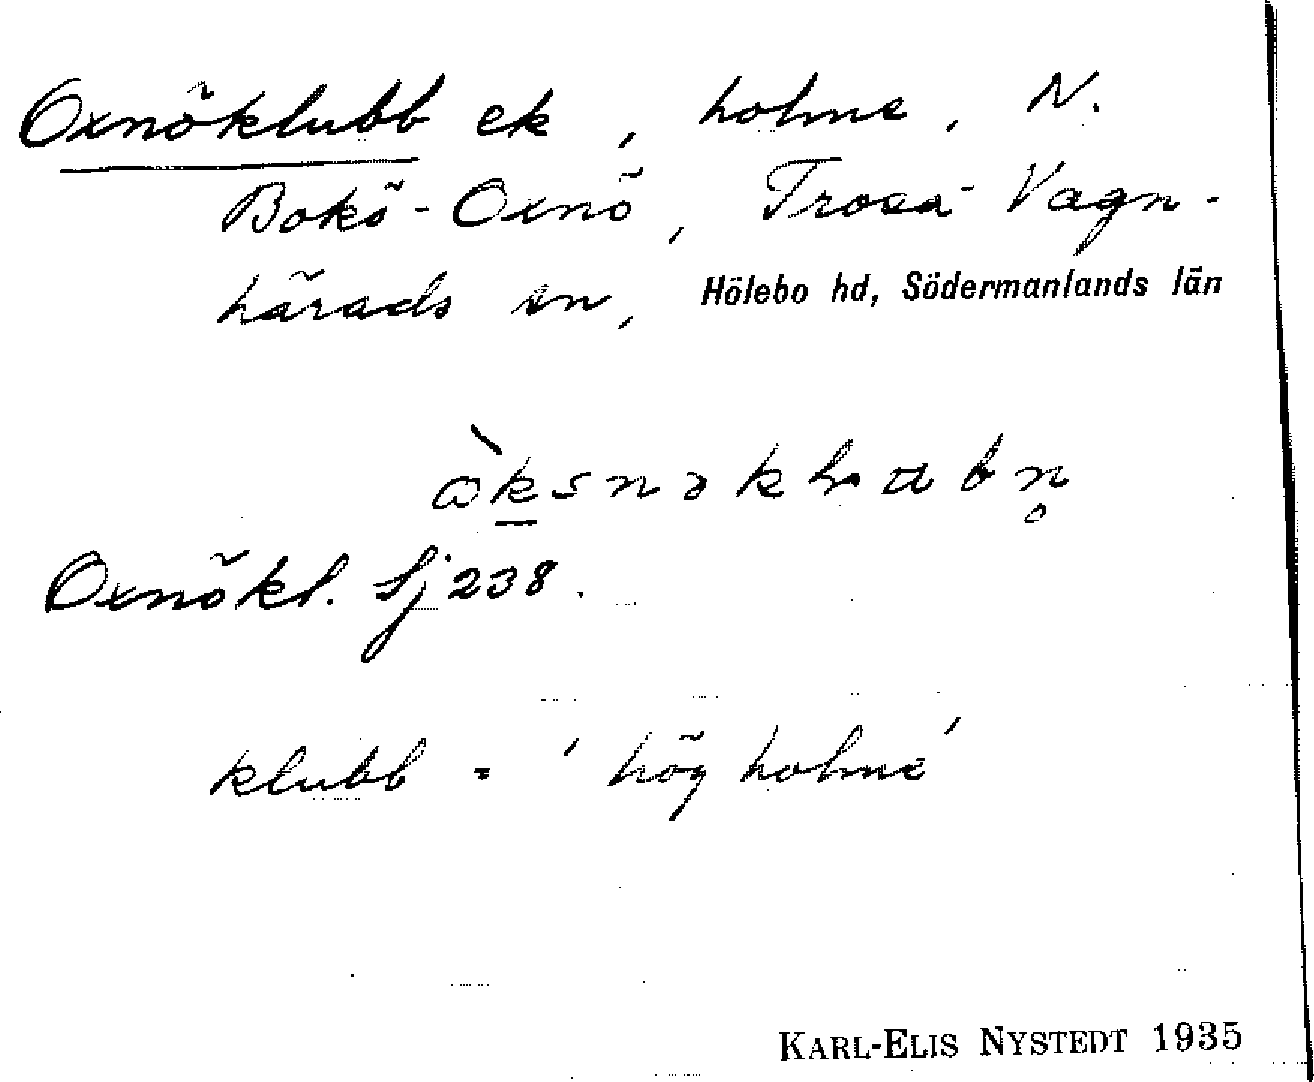 Oxnöklubb ek, holme, N.
Bokö-Oxnö, Trosa-Vagn-
härads sn, Hölebo hd, Södermanlands län
Oxnökl. Sj 238.
klubb = 'hög holme'
KARL-ELIS NYSTEDT 1935